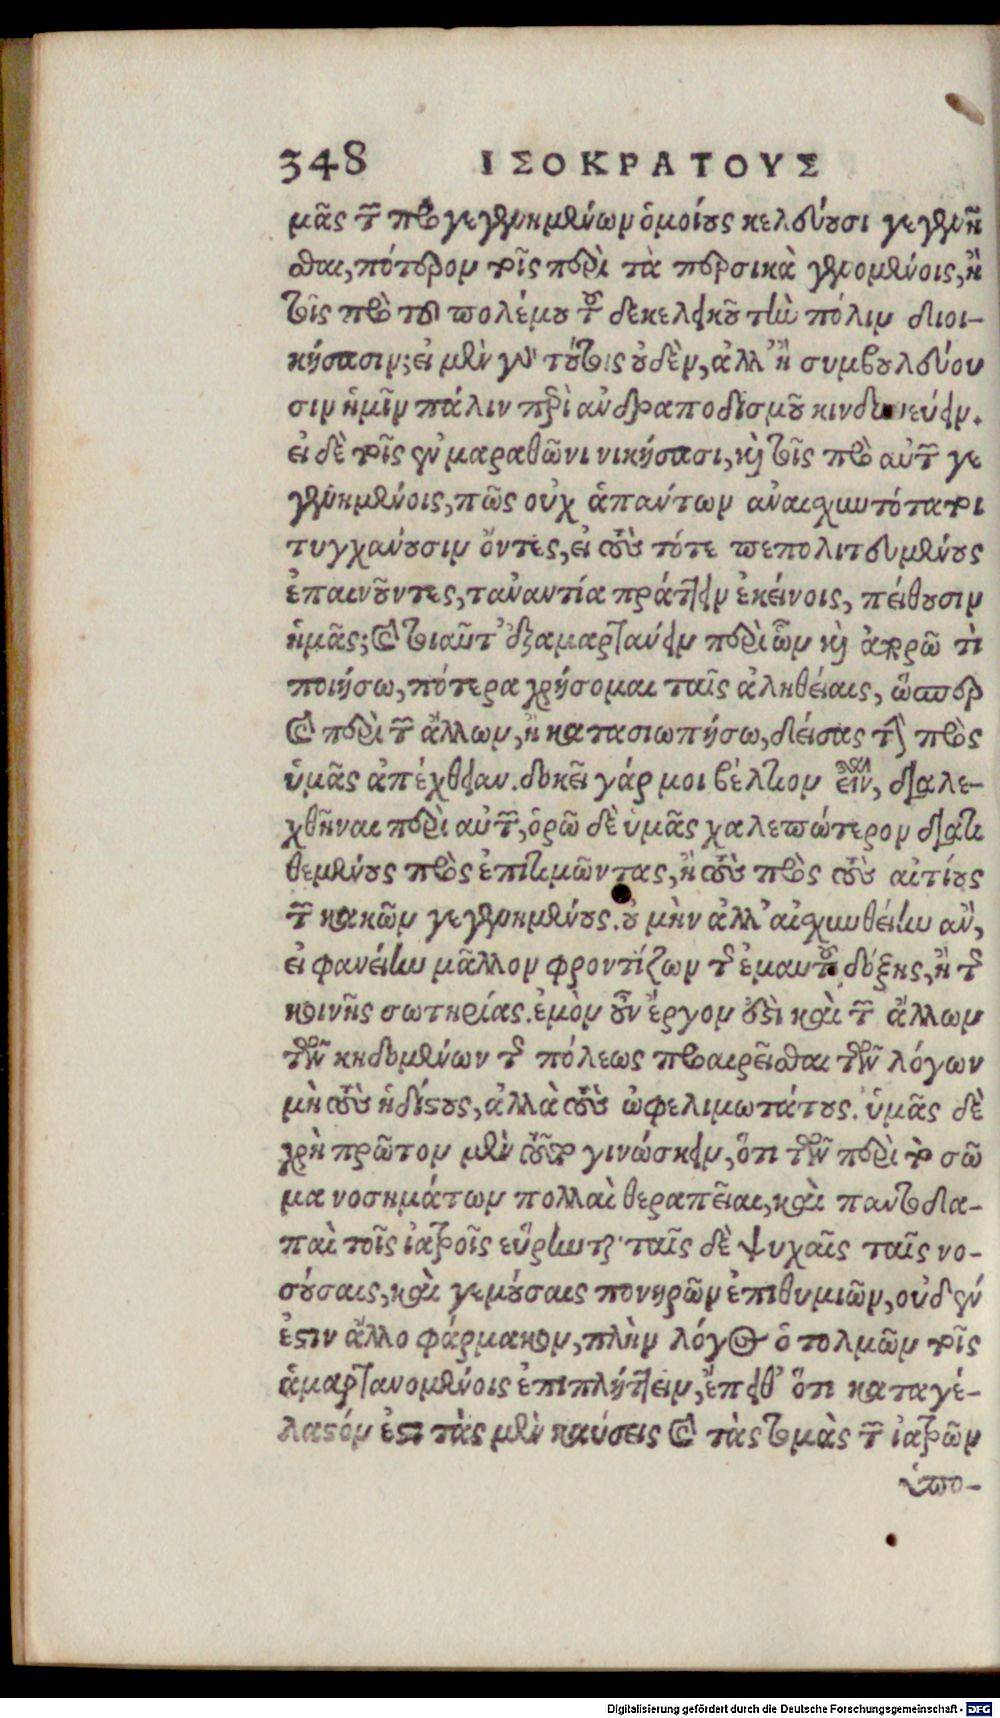 348 ΙΣΟΚΡΑΤΟΥΣ
μᾶς τῶν προγεγενημένων ὁμοίους κελεύουσι γεγενῆ
σθαι, πότερον τοῖς περὶ τὰ περσικὰ γενομένοις, ἢ
τοῖς πρὸ τοῦ πολέμου τοῦ δεκελεικοῦ τὴν πόλιν διοι-
κήσασιν; εἰ μὲν γὰρ τούτοις οὐδὲν, ἀλλ' ἢ συμβουλεύου
σιν ἡμῖν πάλιν περὶ ἀνδραποδισμοῦ κινδυνεύειν.
εἰ δὲ τοῖς ἐν μαραθῶνι νικήσασι, καὶ τοῖς πρὸ αὐτῶν γε
γενημένοις, πῶς οὐχ ἁπάντων ἀναισχυντότατοι
τυγχάνουσιν ὄντες, εἰ τοὺς τότε πεπολιτευμένους
ἐπαινοῦντες, τἀναντία πράττειν ἐκείνοις, πείθουσιν
ἡμᾶς; καὶ τοιαῦτ' ἐξαμαρτάνειν περὶ ὧν καὶ ἀπορῶ τὶ
ποιήσω, πότερα χρήσομαι ταῖς ἀληθείαις, ὥσπερ
καὶ περὶ τῶν ἄλλων, ἢ κατασιωπήσω, δείσας τὴν πρὸς
ὑμᾶς ἀπέχθειαν. δοκεῖ γάρ μοι βέλτιον εἶναι, διαλε-
χθῆναι περὶ αὐτῶν, ὁρῶ δὲ ὑμᾶς χαλεπώτερον διατι
θεμένους πρὸς ἐπιτιμῶντας, ἢ τοὺς πρὸς τοὺς αἰτίους
τῶν κακῶν γεγενημένους. οὐ μὴν ἀλλ' αἰσχυνθείην ἂν,
εἰ φανείην μᾶλλον φροντίζων τῆς ἐμαυτοῦ δόξης, ἢ τῆς
κοινῆς σωτηρίας. ἐμὸν οὖν ἔργον ἐστὶ καὶ τῶν ἄλλων
τῶν κηδομένων τῆς πόλεως προαιρεῖσθαι τῶν λόγων
μὴ τοὺς ἡδίστους, ἀλλὰ τοὺς ὠφελιμωτάτους. ὑμᾶς δὲ
χρὴ πρῶτον μὲν τοῦτο γινώσκειν, ὅτι τῶν περὶ τὸ σῶ
μα νοσημάτων πολλαὶ θεραπεῖαι, καὶ παντοδα-
παὶ τοῖς ἰατροῖς εὕρηνται· ταῖς δὲ ψυχαῖς ταῖς νο-
σούσαις, καὶ γεμούσαις πονηρῶν ἐπιθυμιῶν, οὐδέν
ἐστιν ἄλλο φάρμακον, πλὴν λόγος ὁ τολμῶν τοῖς
ἁμαρτανομένοις ἐπιπλήττειν, ἔπειθ' ὅτι καταγέ-
λαστόν ἐστι τὰς μὲν καύσεις καὶ τὰς τομὰς τῶν ἰατρῶν
ὑπο-
Digitalisierung gefördert durch die Deutsche Forschungsgemeinschaft - DFG